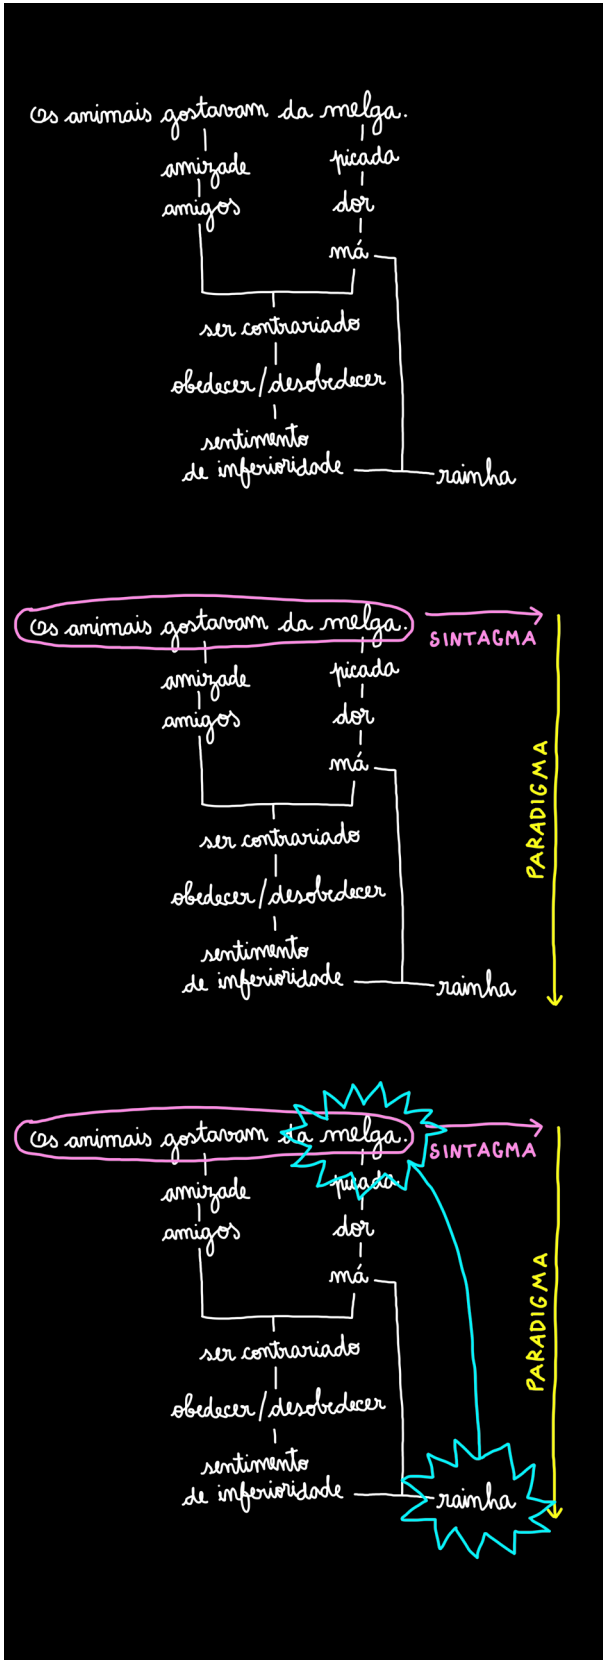 Os animais gostavam da melga.
amizade picada
amigos dor
má
ser contrariado
obedecer/desobedecer
sentimento
de inferioridade rainha
Os animais gostavam da melga.
SINTAGMA
amizade picada
amigos dor
má
PARADIGMA
ser contrariado
obedecer/desobedecer
sentimento
de inferioridade rainha
Os animais gostavam da melga.
SINTAGMA
amizade picada
amigos dor
má
PARADIGMA
ser contrariado
obedecer/desobedecer
sentimento
de inferioridade rainha